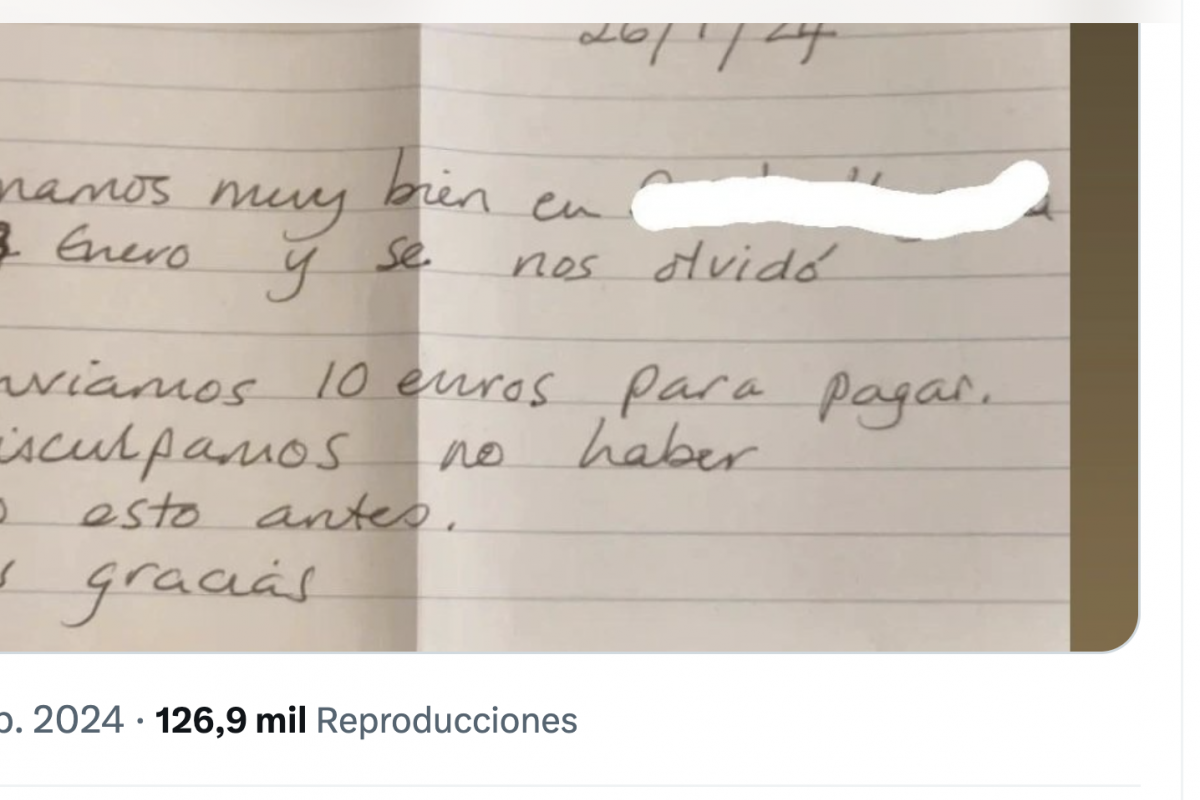 26/1/24
namos muy bien en
Enero y se nos olvidó
nviamos 10 euros para pagar.
isculpamos no haber
esto antes.
s gracias
b. 2024 · 126,9 mil Reproducciones